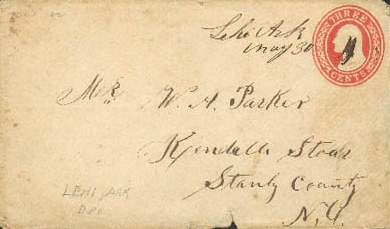 Lehi Ark
May 30
THREE
CENTS
Mr. W. A. Parker
Kendalls Stoar
Stanly County
N.C.
LEHI, ARK